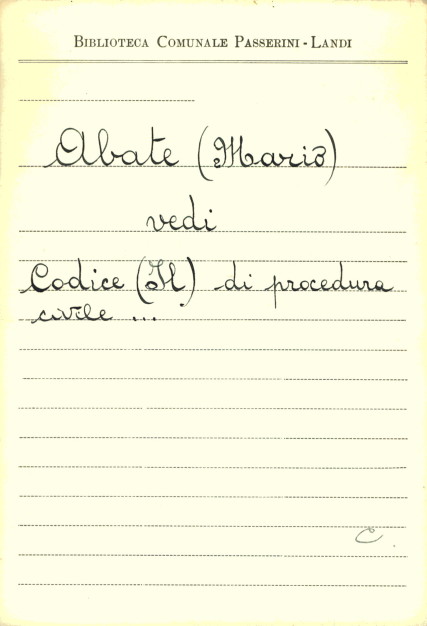 BIBLIOTECA COMUNALE PASSERINI - LANDI
Abate (Mario)
vedi
Codice (Il) di procedura
civile ...
C